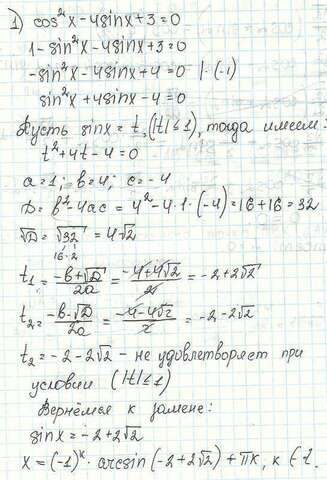 1) cos²x - 4sinx + 3 = 0
1 - sin²x - 4sinx + 3 = 0
-sin²x - 4sinx + 4 = 0 | · (-1)
sin²x + 4sinx - 4 = 0
Пусть sinx = t, (|t| ≤ 1), тогда имеем:
t² + 4t - 4 = 0
a = 1; b = 4; c = -4
D = b² - 4ac = 4² - 4·1·(-4) = 16 + 16 = 32
√D = √32 = 4√2
16·2
t₁ = (-b + √D)/2a = (-4 + 4√2)/2 = -2 + 2√2
t₂ = (-b - √D)/2a = (-4 - 4√2)/2 = -2 - 2√2
t₂ = -2 - 2√2 - не удовлетворяет при
условии (|t| ≤ 1)
Вернёмся к замене:
sinx = -2 + 2√2
x = (-1)ᵏ · arcsin(-2 + 2√2) + πk, k